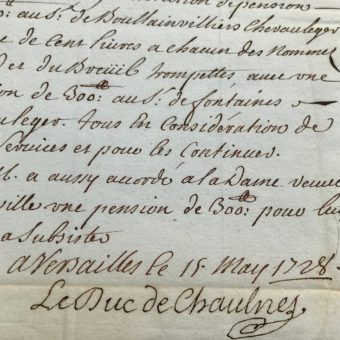 pension
au S.r de Boullainvilliers Chevauleger
e de Cent livres a chacun des nommez
et du Breüil trompettes, avec une
ion de 300.tt au S.r de fontaines
uleger. tous En Considération de
Services et pour les Continuer.
M. a aussy acordé a la Dame veuve
ville une pension de 300.tt pour luy
a Subsister
a Versailles le 15 May 1728.
Le Duc de Chaulnes